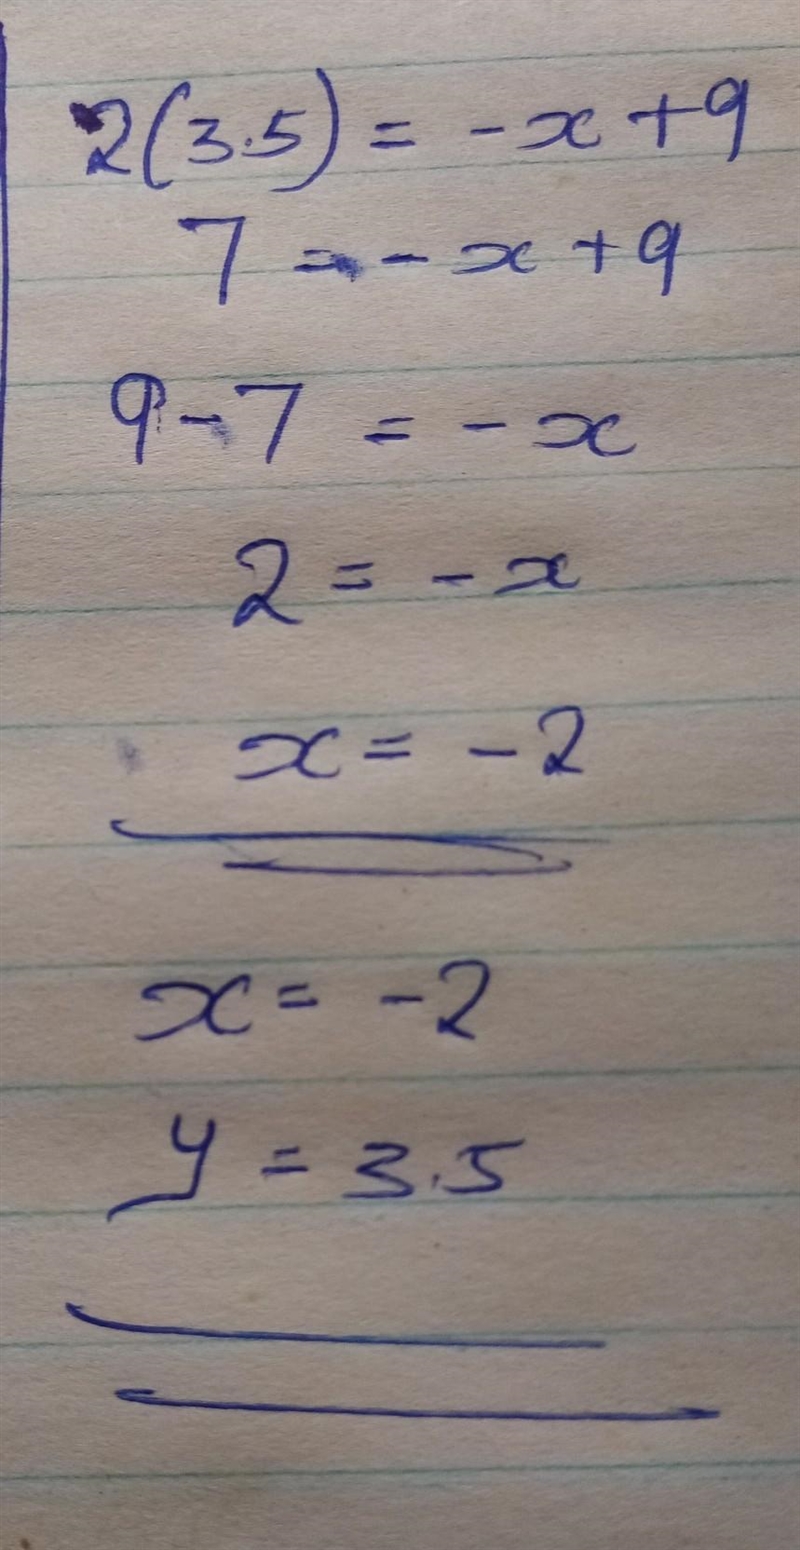 2(3.5) = -x + 9
7 = -x + 9
9 - 7 = -x
2 = -x
x = -2
x = -2
y = 3.5